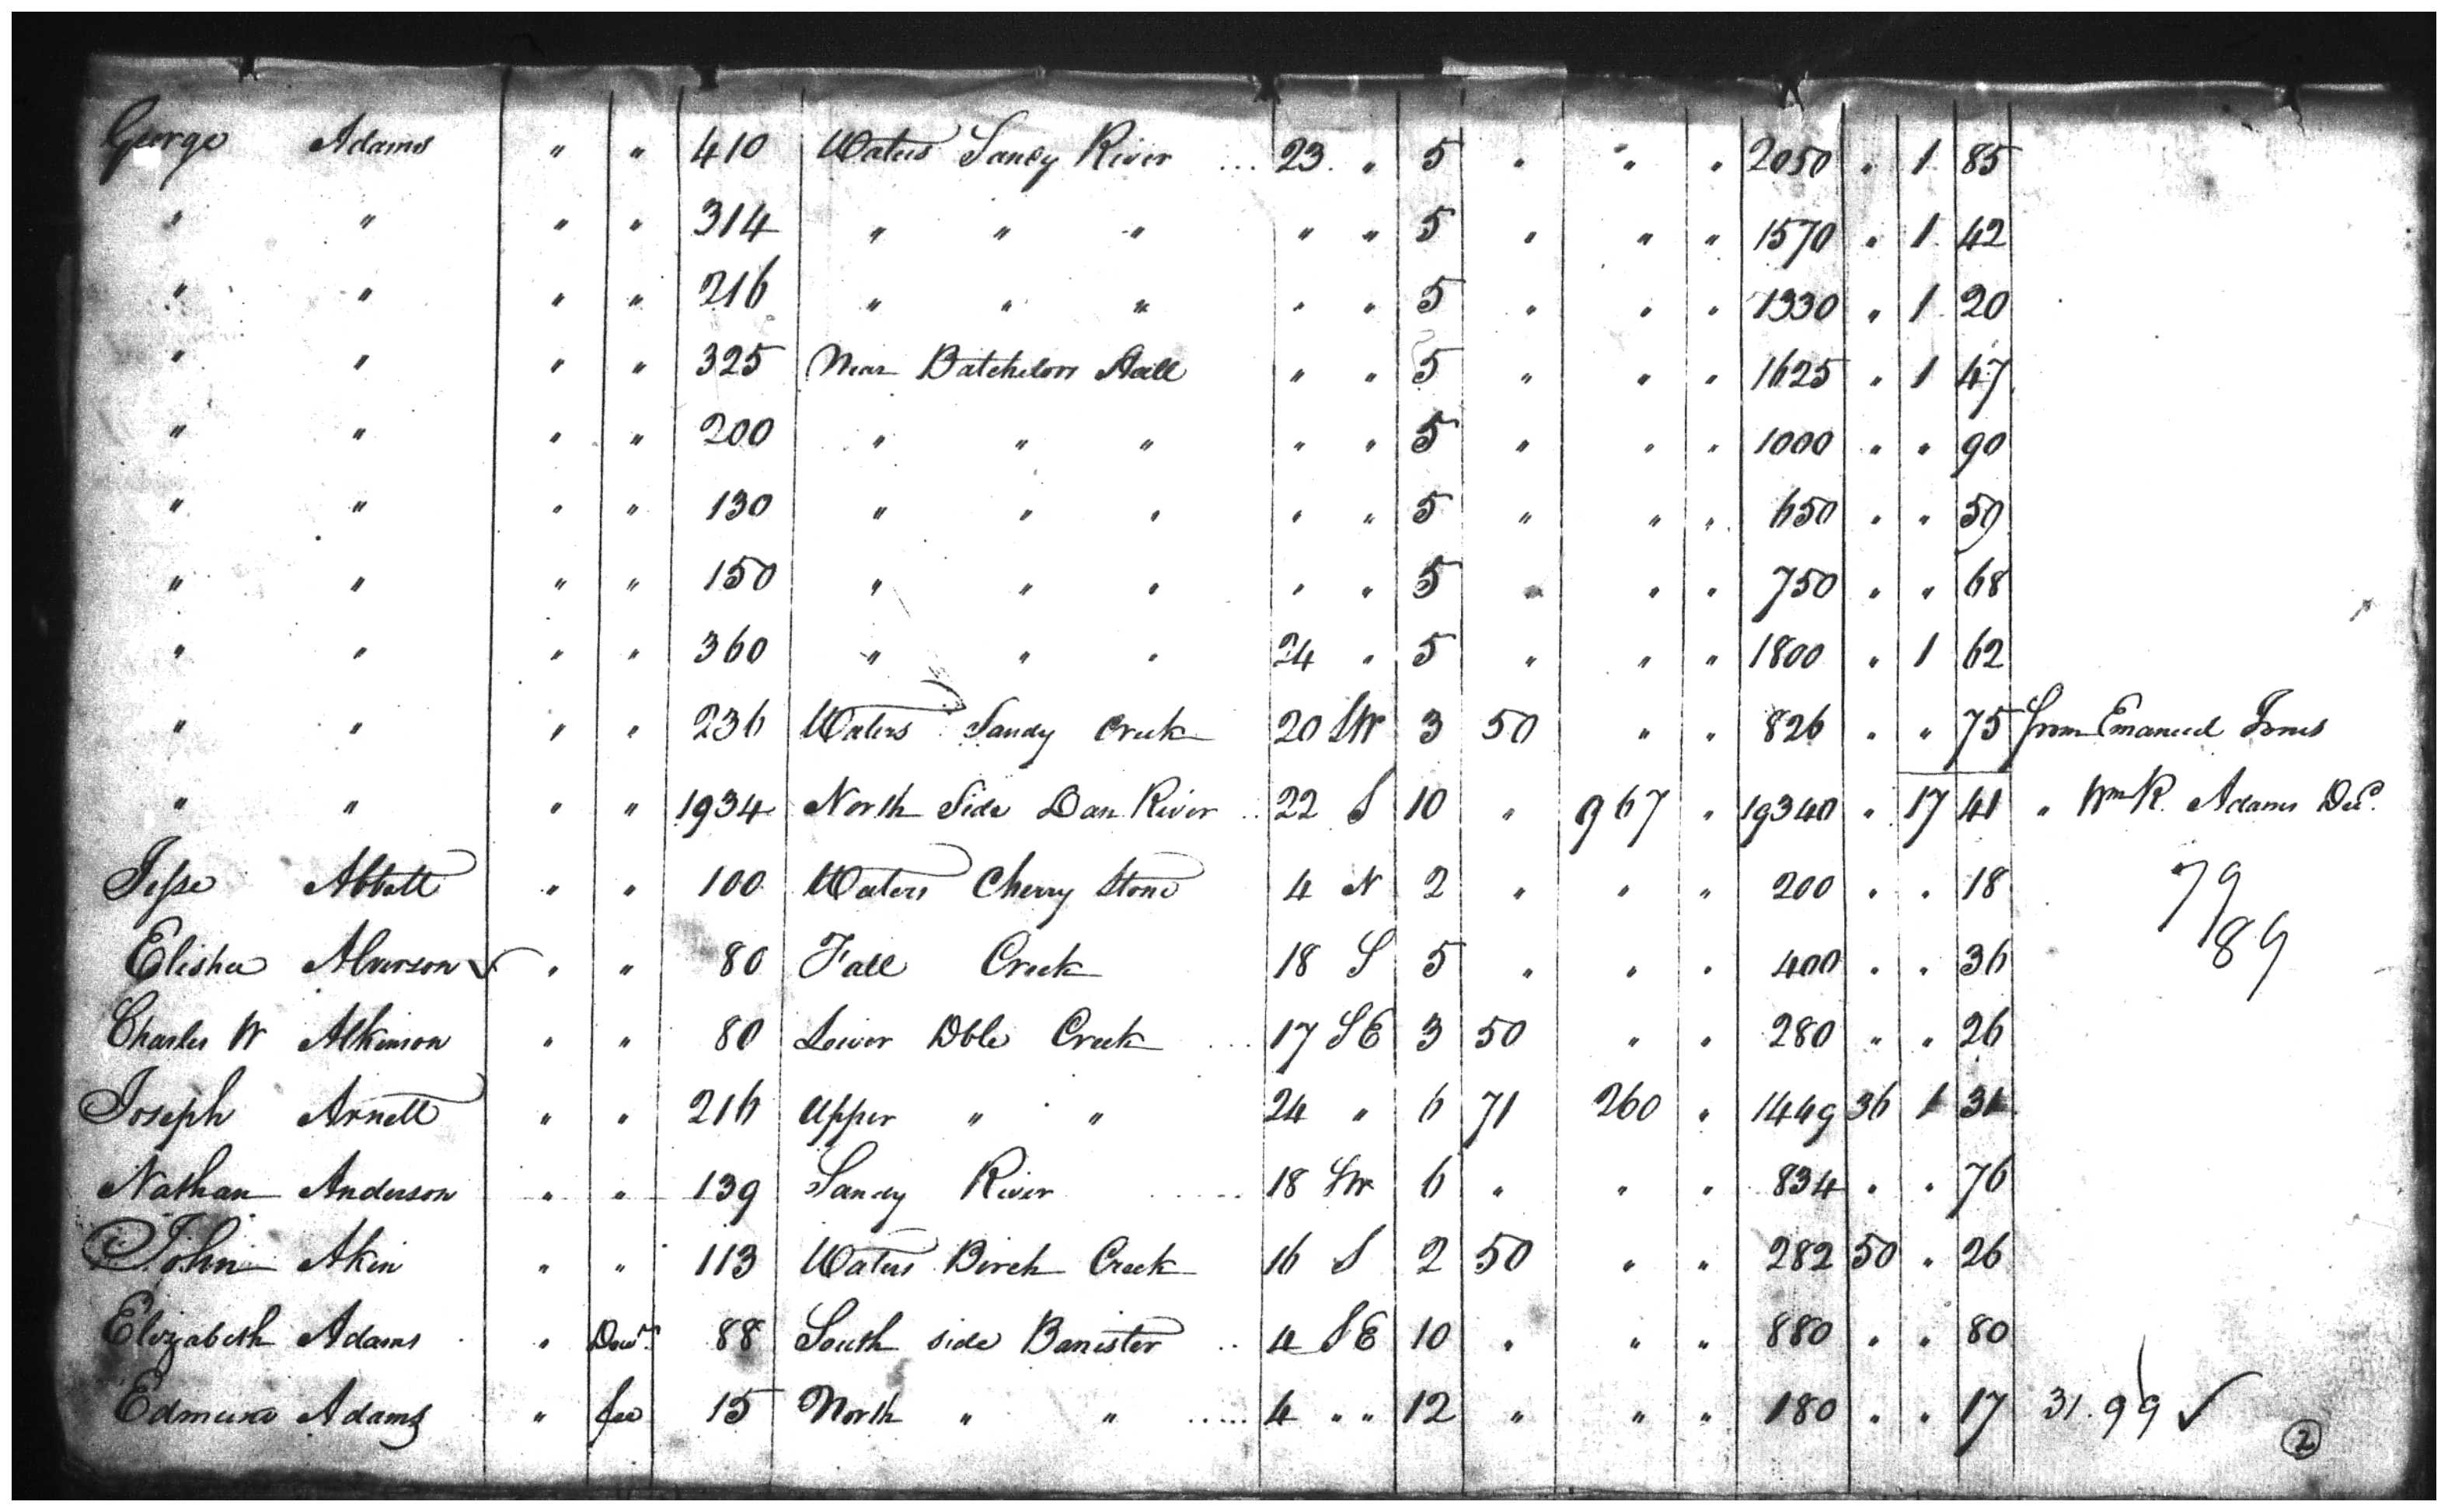 George Adams " " 410 Waters Sandy River ... 23 " 5 " " " 2050 " 1 85
" " " " 314 " " " " " 5 " " " 1570 " 1 42
" " " " 216 " " " " " 5 " " " 1330 " 1 20
" " " " 325 Near Batchelors Hall " " 5 " " " 1625 " 1 47
" " " " 200 " " " " " 5 " " " 1000 " " 90
" " " " 130 " " " " " 5 " " " 650 " " 59
" " " " 150 " " " " " 5 " " " 750 " " 68
" " " " 360 " " " 24 " 5 " " " 1800 " 1 62
" " " " 236 Waters Sandy Creek 20 SW 3 50 " " 826 " " 75 from Emanuel Jones
" " " " 1934 North Side Dan River .. 22 S 10 " 967 " 19340 " 17 41 " Wm R. Adams Decd.
Jesse Abbott " " 100 Waters Cherry Stone 4 N 2 " " " 200 " " 18 79
Elisha Alverson ✓ " " 80 Fall Creek 18 S 5 " " " 400 " " 36 89
Charles W Atkinson " " 80 Lower Dble Creek ... 17 SE 3 50 " " 280 " " 26
Joseph Arnett " " 216 Upper " " 24 " 6 71 260 " 1449 36 1 31
Nathan Anderson " " 139 Sandy River ..... 18 SW 6 " " " 834 " " 76
John Akin " " 113 Waters Birch Creek 16 S 2 50 " " 282 50 " 26
Elizabeth Adams " Dowr. 88 South side Banister .. 4 SE 10 " " " 880 " " 80
Edmund Adams " fee 15 North " " ..... 4 " " 12 " " " 180 " " 17 31.99 ✓
2